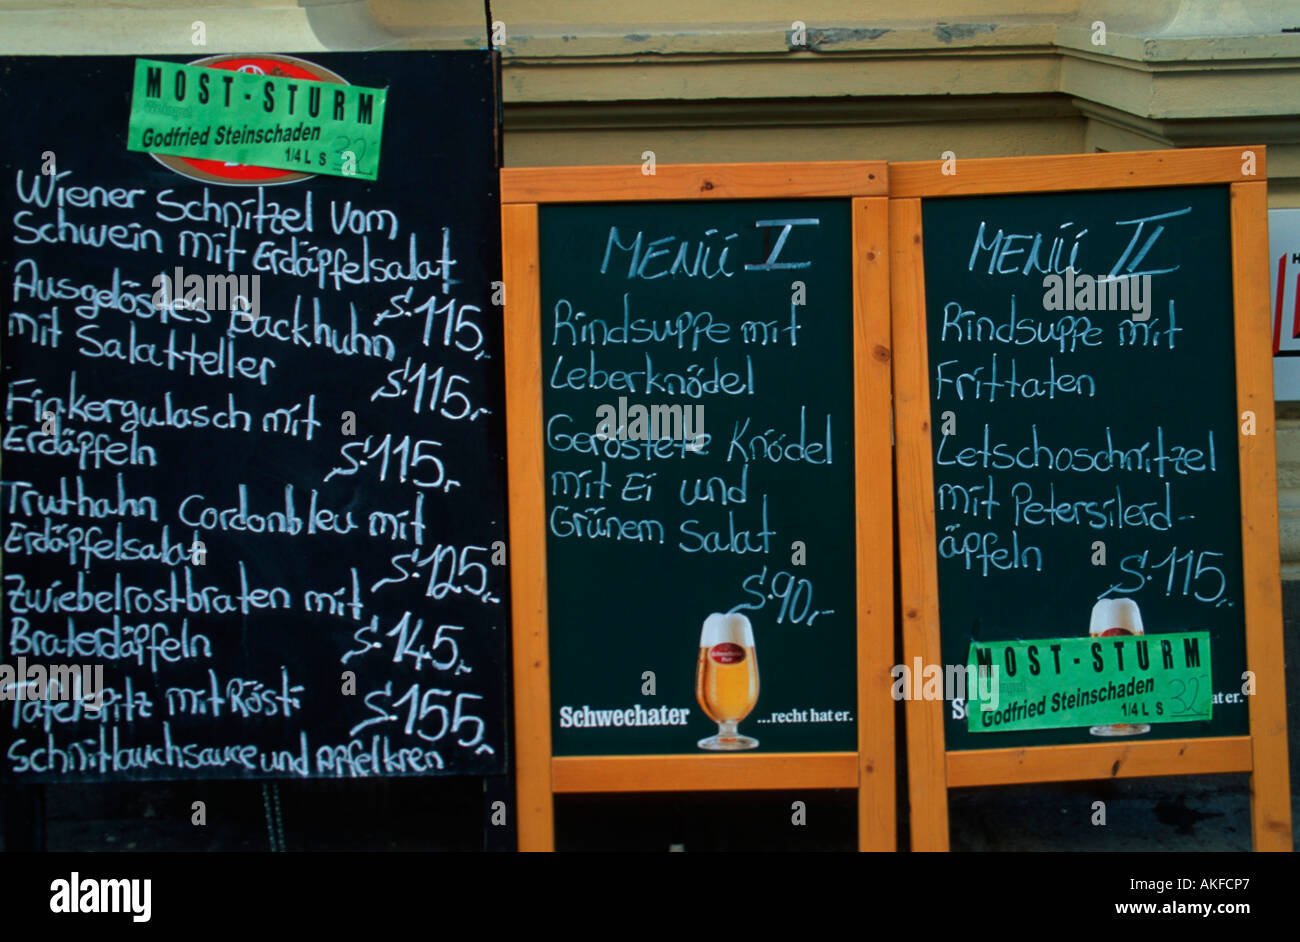 MOST-STURM
Weingut
Godfried Steinschaden
1/4 L S 32,-
Wiener Schnitzel vom
Schwein mit Erdäpfelsalat
S. 115,-
Ausgelöstes Backhuhn
mit Salatteller
S. 115,-
Fiakergulasch mit
Erdäpfeln
S. 115,-
Truthahn Cordonbleu mit
Erdäpfelsalat
S. 125,-
Zwiebelrostbraten mit
Braterdäpfeln
S. 145,-
Tafelspitz mit Röst-
S. 155,-
Schnittlauchsauce und Apfelkren
MENÜ I
Rindsuppe mit
Leberknödel
Geröstete Knödel
mit Ei und
Grünem Salat
S. 90,-
Schwechater ...recht hat er.
MENÜ II
Rindsuppe mit
Frittaten
Letschoschnitzel
mit Petersilerd-
äpfeln
S. 115,-
MOST-STURM
Weingut
Godfried Steinschaden
1/4 L S 32,-
at er.
alamy
Image ID: AKFCP7
www.alamy.com